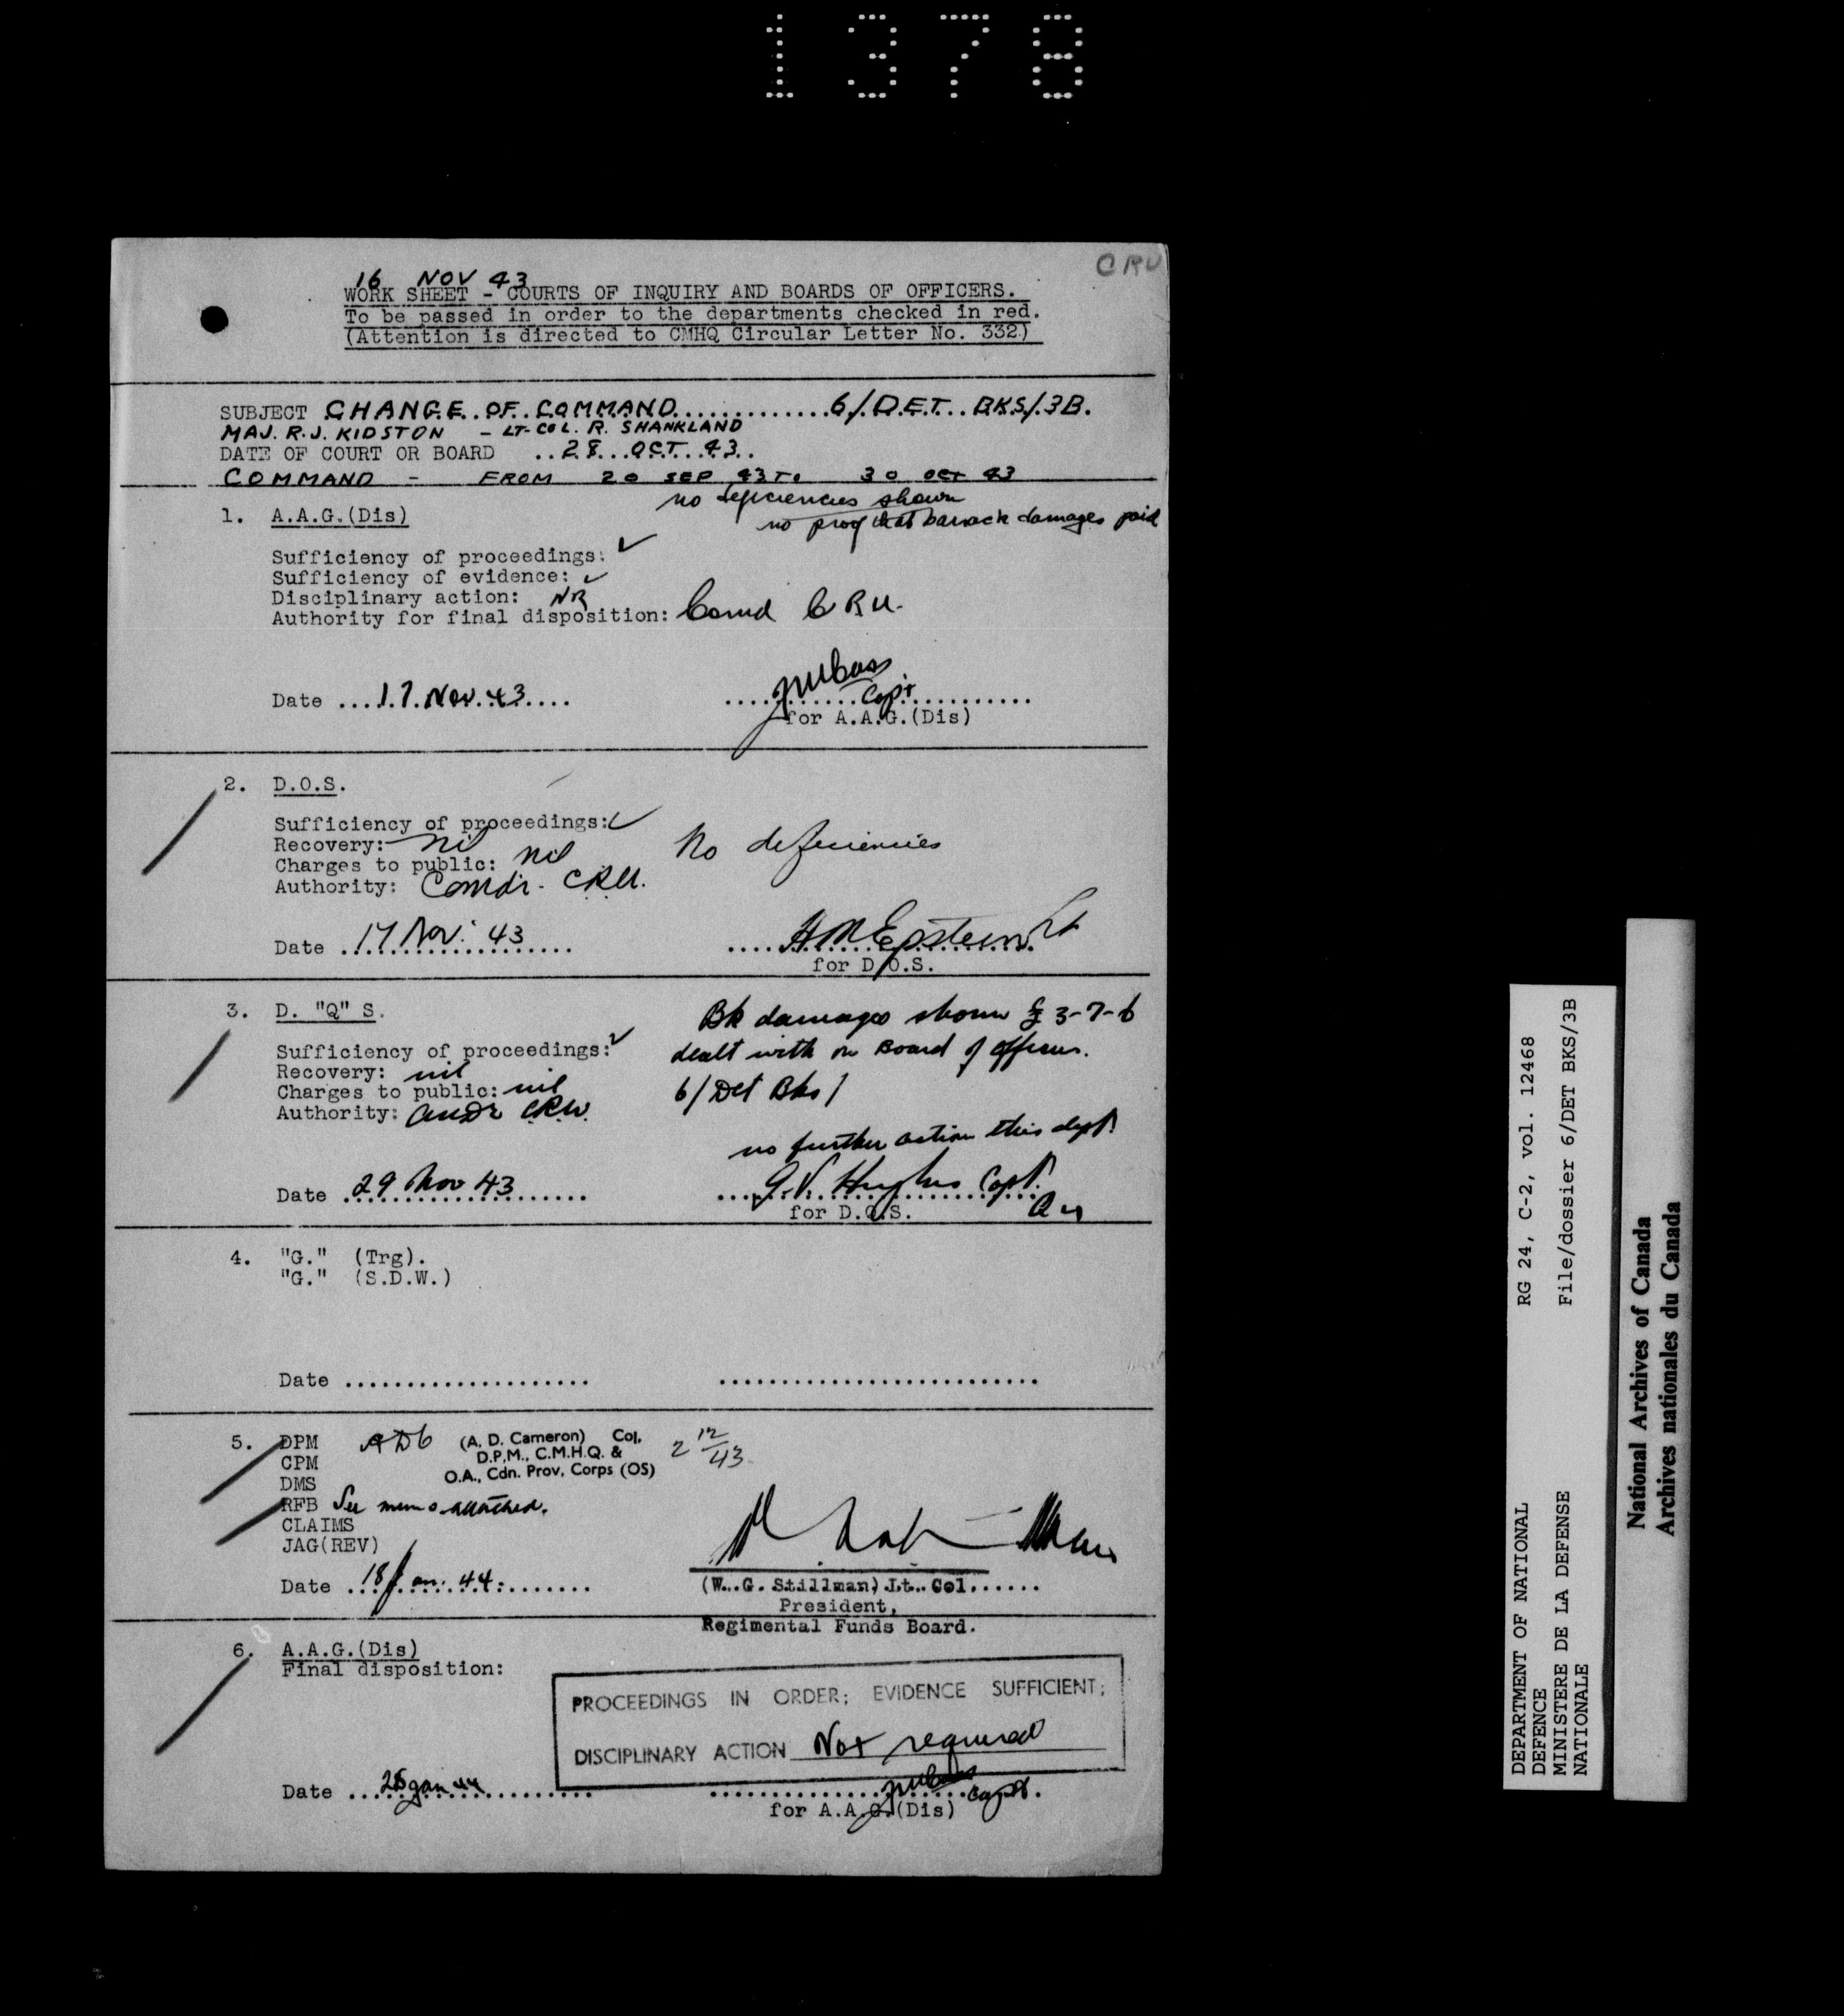 1378
CRU
16 NOV 43
WORK SHEET - COURTS OF INQUIRY AND BOARDS OF OFFICERS.
To be passed in order to the departments checked in red.
(Attention is directed to CMHQ Circular Letter No. 332)
SUBJECT CHANGE OF COMMAND............. 6/DET BKS/3B.
MAJ. R.J. KIDSTON - LT-COL. R. SHANKLAND
DATE OF COURT OR BOARD ..28...OCT...43..
COMMAND - FROM 20 SEP 43 TO 30 OCT 43
no deficiencies shown
1. A.A.G.(Dis)
no proof that barrack damages paid
Sufficiency of proceedings: ✓
Sufficiency of evidence: ✓
Disciplinary action: NR
Authority for final disposition: Comd CRU.
Date ....17.Nov.43....
Capt
for A.A.G.(Dis)
2. D.O.S.
Sufficiency of proceedings: ✓
Recovery: nil
No deficiencies
Charges to public: nil
Authority: Comdr. CRU.
Date .17 Nov. 43
HM Epstein Lt
for D.O.S.
3. D. "Q" S.
Bk damages shown £3-7-6
Sufficiency of proceedings: ✓
dealt with on Board of Officers.
Recovery: nil
Charges to public: nil
6/Det Bks/
Authority: Comdr CRU.
no further action this dept.
Date 29 Nov 43
G.V. Hughes Capt.
for D.Q.S.
4. "G." (Trg).
"G." (S.D.W.)
Date ....................
5. DPM
(A. D. Cameron) Col,
D.P.M., C.M.H.Q. &
O.A., Cdn. Prov. Corps (OS)
2 12/43
CPM
DMS
RFB See memo attached.
CLAIMS
JAG(REV)
Date 18 Jan. 44.
(W. G. Stillman) Lt. Col......
President,
Regimental Funds Board.
6. A.A.G.(Dis)
Final disposition:
PROCEEDINGS IN ORDER; EVIDENCE SUFFICIENT;
DISCIPLINARY ACTION Not required
Date ... Jan 44
Capt.
for A.A.G.(Dis)
DEPARTMENT OF NATIONAL
DEFENCE
MINISTERE DE LA DEFENSE
NATIONALE
RG 24, C-2, vol. 12468
File/dossier 6/DET BKS/3B
National Archives of Canada
Archives nationales du Canada